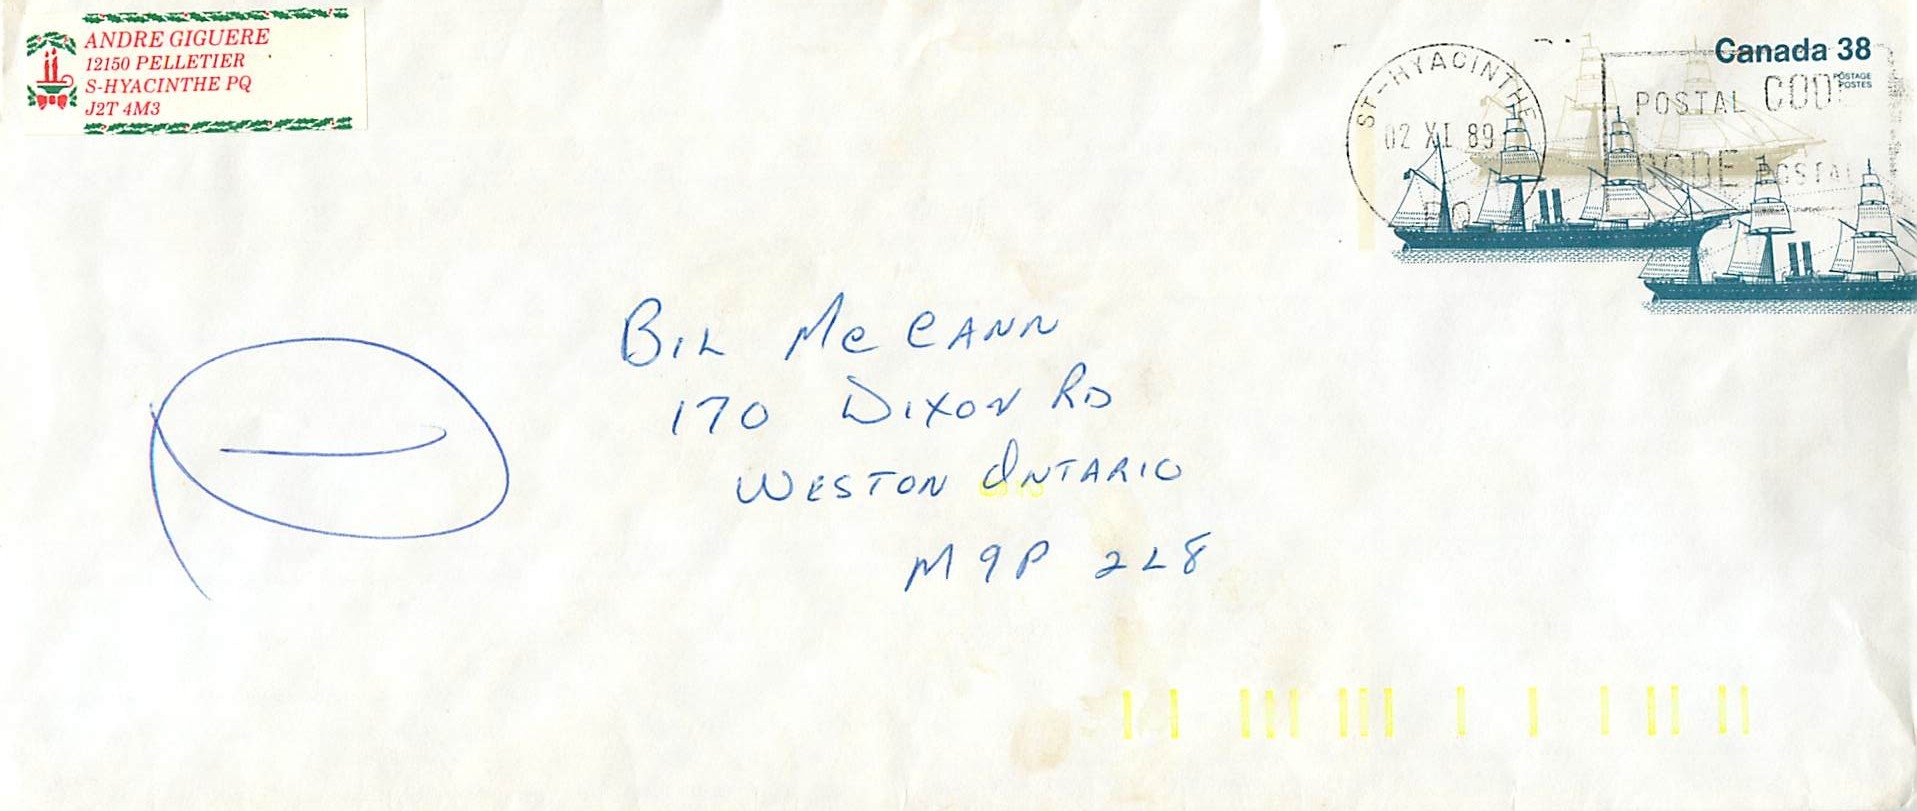 ANDRE GIGUERE
12150 PELLETIER
S-HYACINTHE PQ
J2T 4M3
Canada 38
POSTAGE
POSTES
ST-HYACINTHE
02 XI 89
PQ
POSTAL CODE
CODE POSTAL
BIL McCANN
170 DIXON RD
WESTON ONTARIO
M9P 2L8